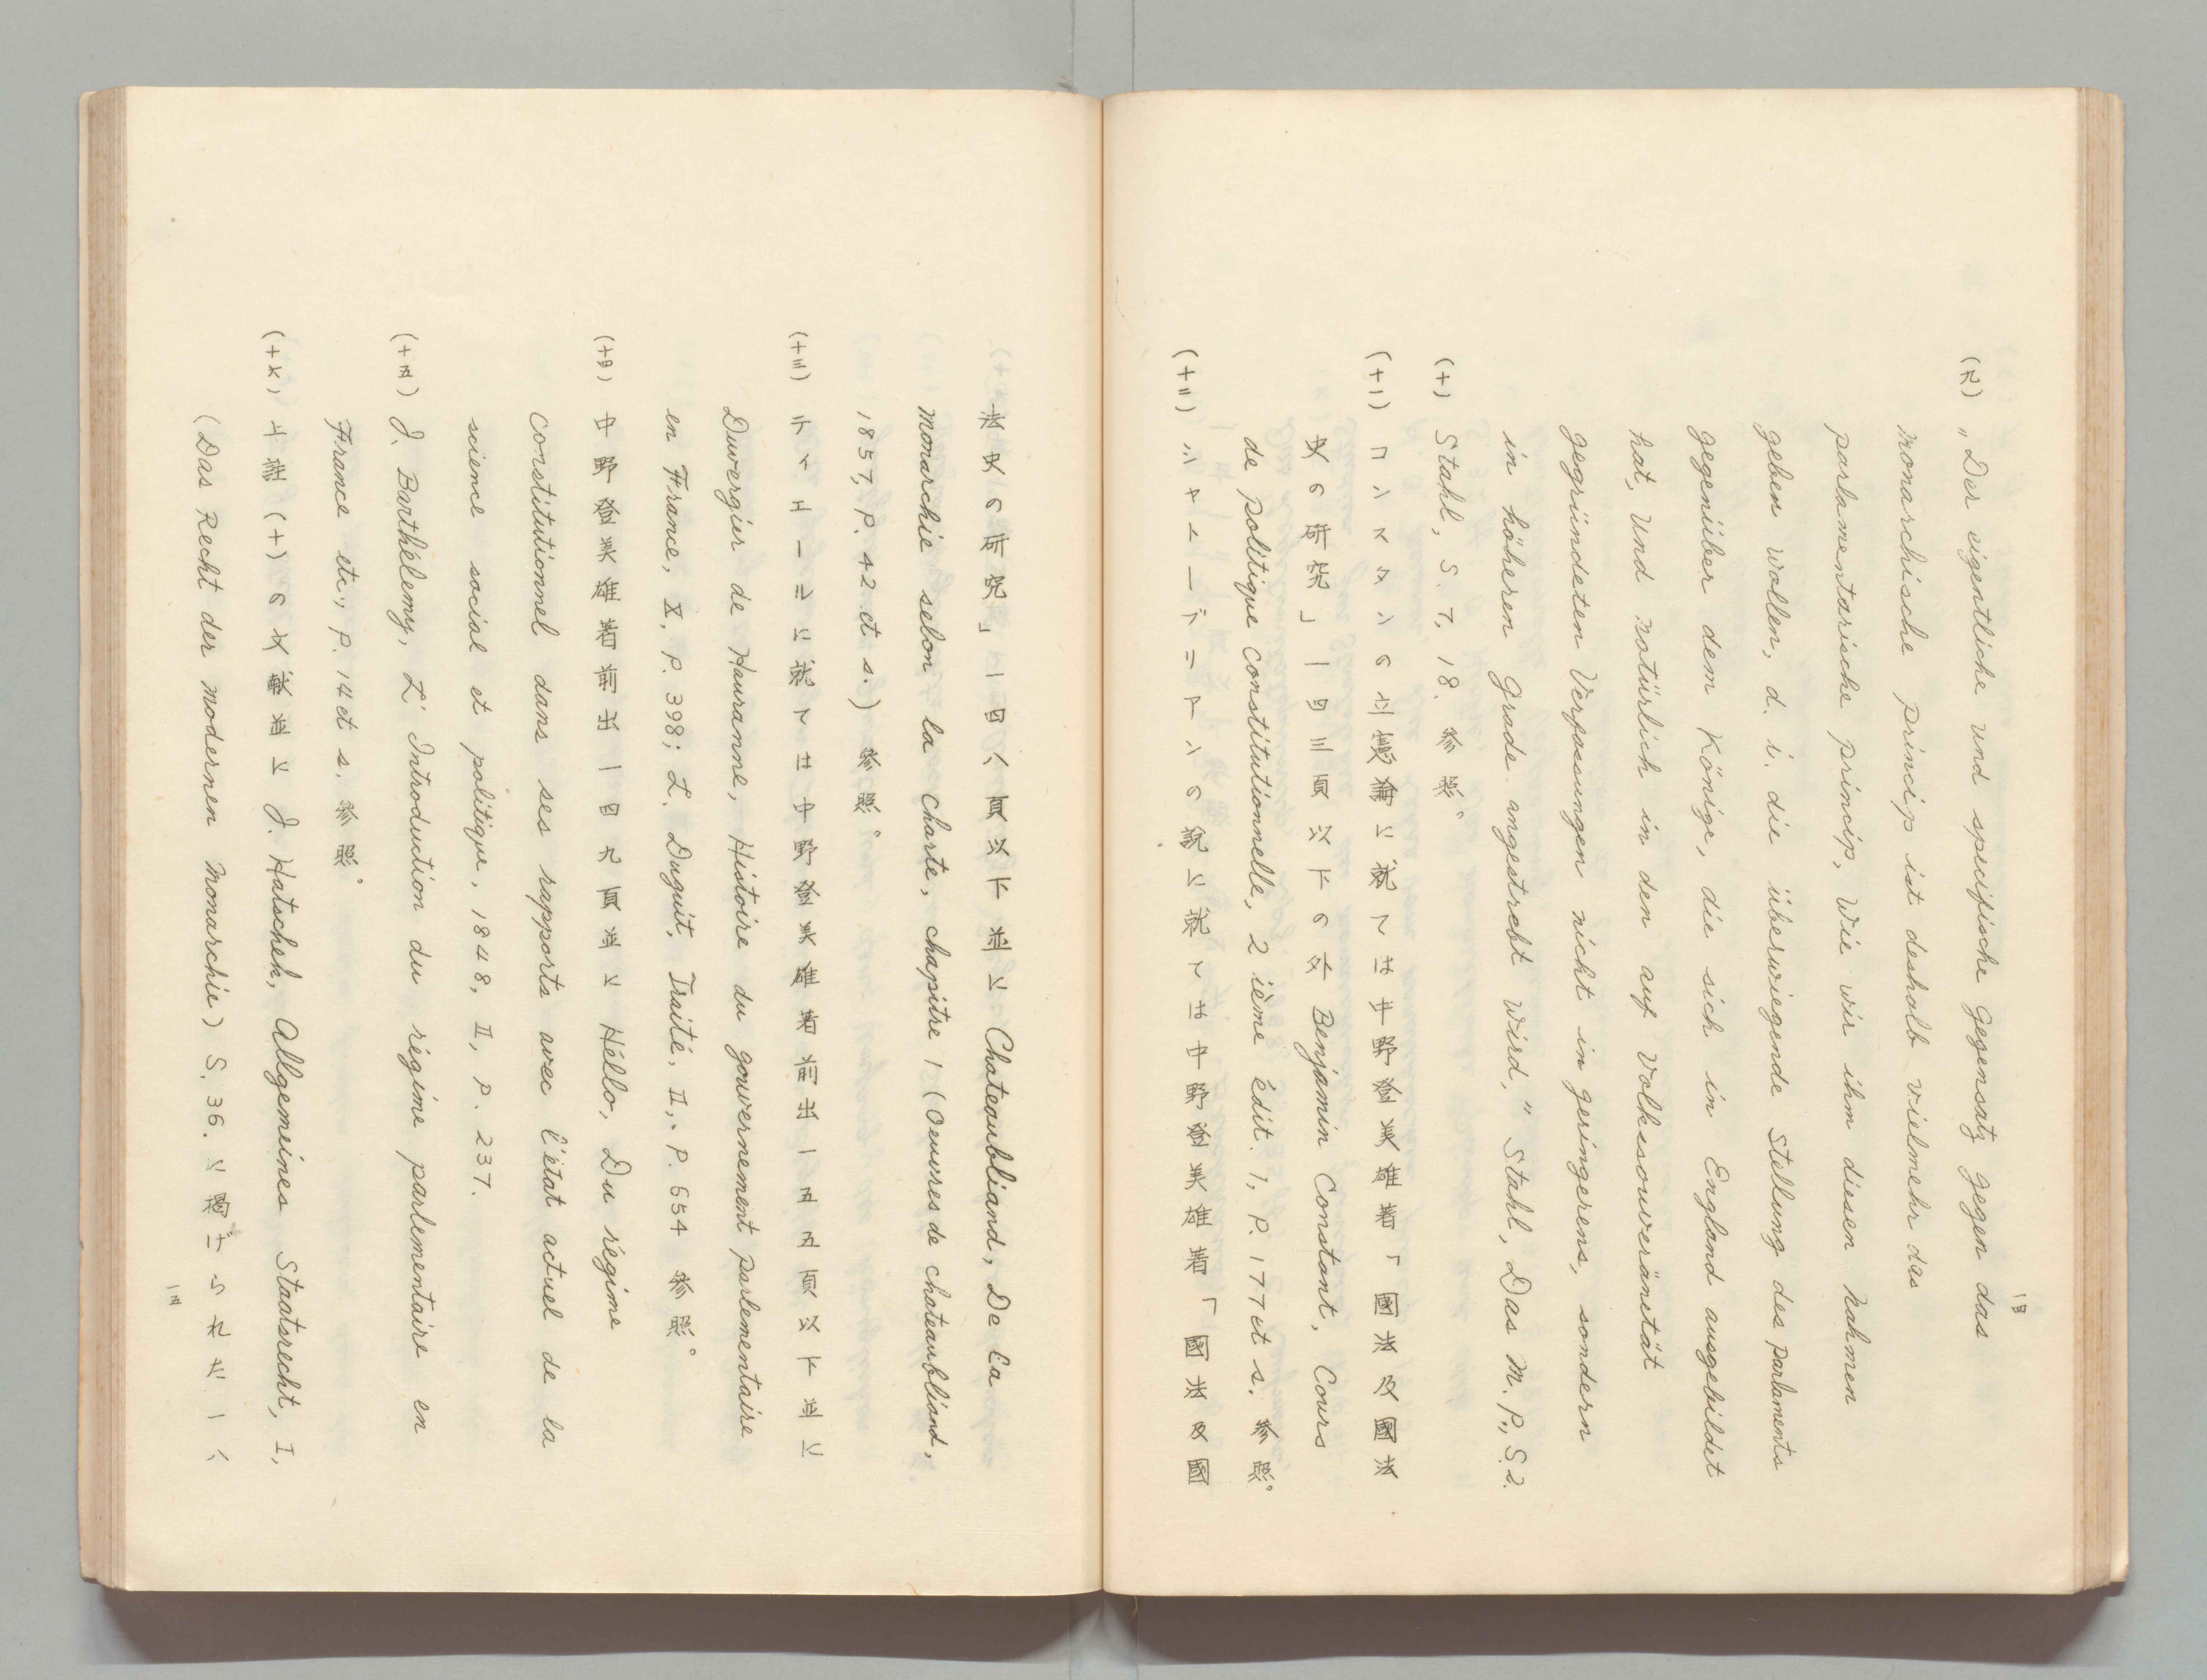 一四
(九) „Der eigentliche und specifische Gegensatz gegen das
monarchische Princip ist deshalb vielmehr das
parlamentarische Princip, Wie wir ihm diesen Nahmen
geben wollen, d. i. die überwiegende Stellung des parlaments
gegenüber dem Könige, die sich in England ausgebildet
hat, und natürlich in den auf Volkssouveränität
gegründeten Verfassungen nicht in geringerens, sondern
in höheren Grade angestrebt Wird." Stahl, Das M. P., S. 2.
(十) Stahl, S. 7, 18. 参照。
(十一) コンスタンの立憲論に就ては中野登美雄著「國法及國法
史の研究」一四三頁以下の外 Benjamin Constant, Cours
de politique constitutionnelle, 2 ième édit. 1, P. 177 et s. 参照。
(十二) シャトーブリアンの説に就ては中野登美雄著「國法及國
法史の研究」一四八頁以下並に Chateaubliand, De la
monarchie selon la charte, chapitre 1 (Oeuvres de chateaubliand,
1857, P. 42 et s.) 参照。
(十三) ティエールに就ては中野登美雄著前出一五五頁以下並に
Duvergier de Hauranne, Histoire du gouvernement parlementaire
en France, X, P. 398; L. Duguit, Traité, II, P. 654 参照。
(十四) 中野登美雄著前出一四九頁並に Héllo, Du régime
constitutionnel dans ses rapports avec l'état actuel de la
science social et politique, 1848, II, P. 237.
(十五) J. Barthélemy, L' Introduction du régime parlementaire en
France etc., P. 14 et s. 参照。
(十六) 上註(十)の文献並に J. Hatschek, Allgemeines Staatsrecht, I,
(Das Recht der modernen Monarchie) S. 36. に掲げられた一八
一五